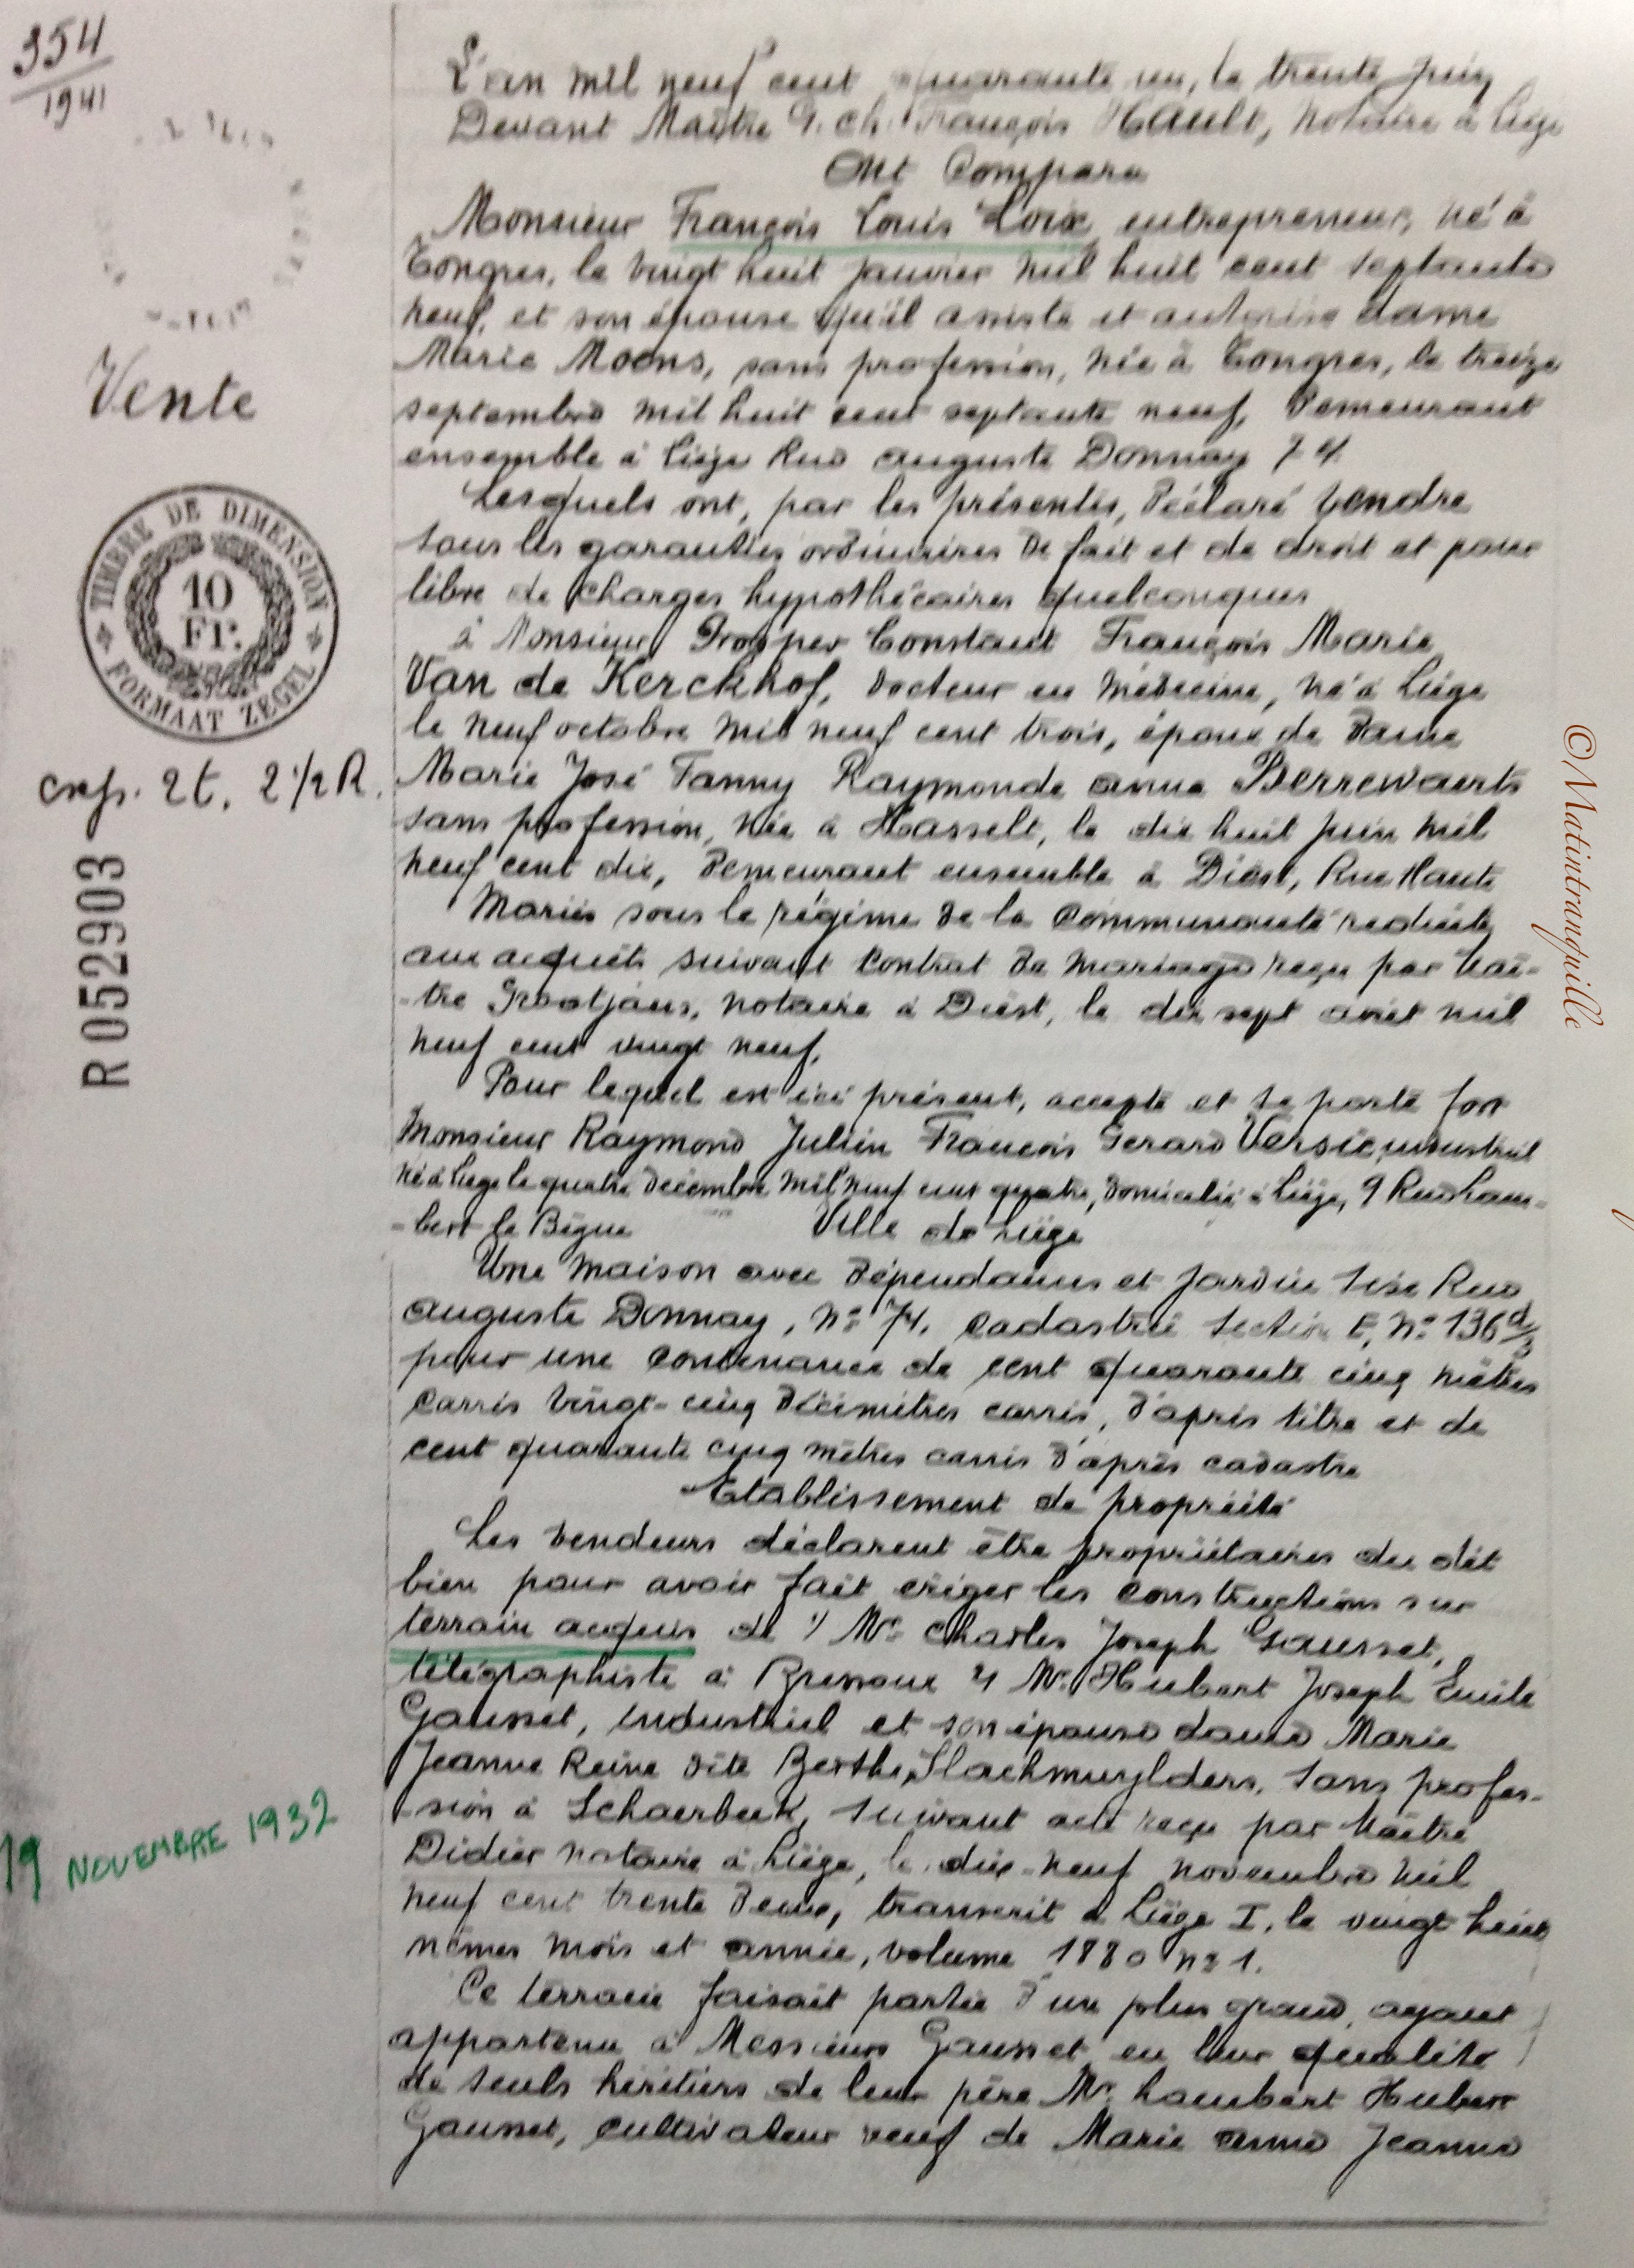 354
1941
Vente
TIMBRE DE DIMENSION
10
Fr.
FORMAAT ZEGEL
R 052903
19 NOVEMBRE 1932
L'an mil neuf cent quarante un, le trente juin
Devant Maître G. Ch. François Hault, Notaire à Liége
Ont Comparu
Monsieur François Louis Loix, entrepreneur, né à
Tongres, le vingt huit janvier mil huit cent septante
neuf, et son épouse qu'il assiste et autorise dame
Marie Moons, sans profession, née à Tongres, le treize
septembre mil huit cent septante neuf, demeurant
ensemble à Liége Rue Auguste Donnay 74.
Lesquels ont, par les présentes, déclaré vendre
sous les garanties ordinaires de fait et de droit et pour
libre de charges hypothécaires quelconques
à Monsieur Prosper Constant François Marie
Van de Kerckhof, docteur en médecine, né à Liége
le neuf octobre mil neuf cent trois, époux de dame
Marie José Fanny Raymonde Anna Berrewaerts
sans profession, née à Hasselt, le dix huit juin mil
neuf cent dix, demeurant ensemble à Diest, Rue Haute
Mariés sous le régime de la communauté reduite
aux acquêts suivant contrat de mariage reçu par Maî-
-tre Grootjans, notaire à Diest, le dix sept avril mil
neuf cent vingt neuf.
Pour lequel est ici présent, accepte et se porte fort
Monsieur Raymond Julien François Gerard Versie, industriel
né à Liége le quatre décembre mil neuf cent quatre, domicilié à Liége, 9 Rue Lam-
-bert le Bègue
Ville de Liége
Une maison avec dépendances et jardin sise Rue
Auguste Donnay, n° 74. cadastrée section E, n° 136 d/3
pour une contenance de cent quarante cinq mètres
carrés vingt-cinq décimètres carrés, d'après titre et de
cent quarante cinq mètres carrés d'après cadastre
Etablissement de propriété
Les vendeurs déclarent être propriétaires du dit
bien pour avoir fait ériger les constructions sur
terrain acquis de 1/ Mr Charles Joseph Gausset,
télégraphiste à Bressoux 2/ Mr Hubert Joseph Emile
Gausset, industriel et son épouse dame Marie
Jeanne Reine dite Berthe Slachmuylders, sans profes-
-sion à Schaerbeek, suivant acte reçu par Maître
Didier notaire à Liége, le dix-neuf novembre mil
neuf cent trente deux, transcrit à Liége I, le vingt huit
mêmes mois et année, volume 1880 n° 1.
Ce terrain faisait partie d'un plus grand, ayant
appartenu à Messieurs Gausset en leur qualité
de seuls héritiers de leur père Mr Lambert Hubert
Gausset, cultivateur veuf de Marie Anne Jeanne
©Matintranquille